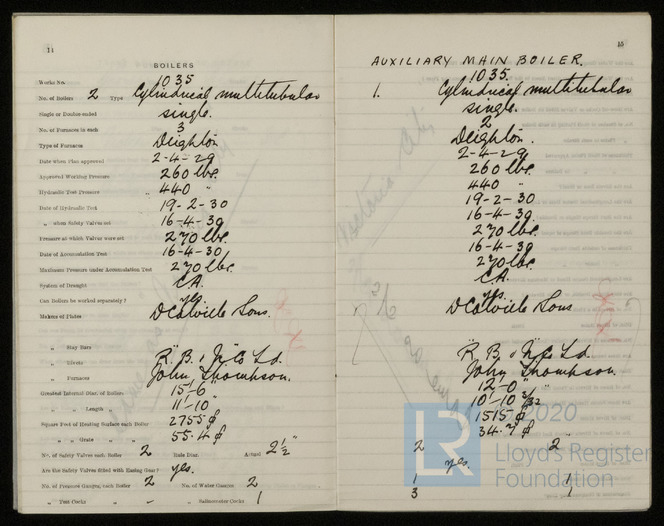 14
BOILERS
Works No. 1035
No. of Boilers 2 Type Cylindrical multitubular
Single or Double-ended single.
No. of Furnaces in each 3
Type of Furnaces Deighton
Date when Plan approved 2-4-29
Approved Working Pressure 260 lbs.
Hydraulic Test Pressure 440 "
Date of Hydraulic Test 19-2-30
" when Safety Valves set 16-4-30
Pressure at which Valves were set 270 lbs.
Date of Accumulation Test 16-4-30
Maximum Pressure under Accumulation Test 270 lbs.
System of Draught C.A.
Can Boilers be worked separately? yes.
Makers of Plates D Colville Sons.
" Stay Bars
" Rivets R. B. & N. Co Ld.
" Furnaces John Thompson.
Greatest Internal Diam. of Boilers 15'-6"
" " Length " 11'-10"
Square Feet of Heating Surface each Boiler 2755
" " Grate " " 55.4
No. of Safety Valves each Boiler 2 Rule Diam. Actual 2½"
Are the Safety Valves fitted with Easing Gear? yes.
No. of Pressure Gauges, each Boiler 2 No. of Water Gauges 2
" Test Cocks " - " Salinometer Cocks 1
15
AUXILIARY MAIN BOILER.
1035.
1. Cylindrical multitubular
single.
2
Deighton.
2-4-29
260 lbs.
440 "
19-2-30
16-4-30
270 lbs.
16-4-30
270 lbs.
C.A.
yes.
D Colville Sons
R. B. & N. Co Ld.
John Thompson.
12'-0"
10'-10 3/32
1515
34.7
2 2"
yes.
1 1
3 1
© 2020
LR
Lloyd's Register
Foundation